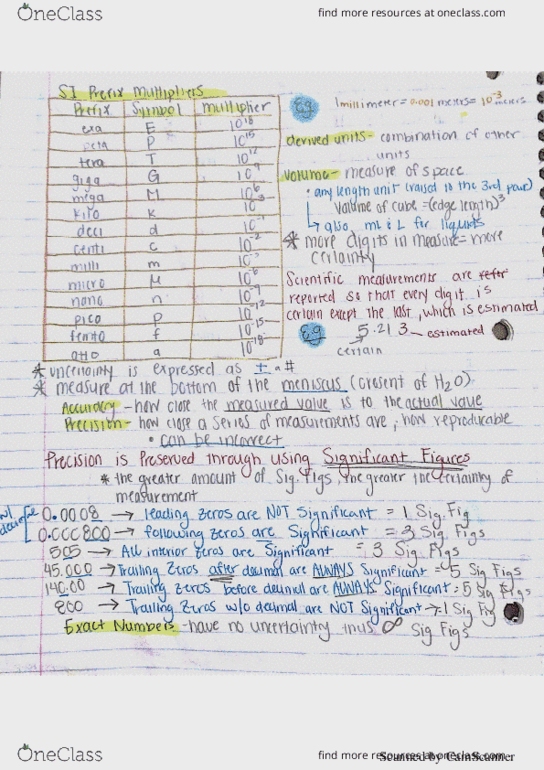 OneClass
find more resources at oneclass.com
SI Prefix Multipliers
Prefix Symbol multiplier
exa E 10^18
peta P 10^15
tera T 10^12
giga G 10^9
mega M 10^6
kilo k 10^3
deci d 10^-1
centi c 10^-2
milli m 10^-3
micro μ 10^-6
nano n 10^-9
pico p 10^-12
femto f 10^-15
atto a 10^-18
E.g 1 millimeter = 0.001 meters = 10^-3 meters
derived units - combination of other
units
volume - measure of space
• any length unit (raised to the 3rd power)
Volume of cube = (edge length)^3
↳ also mL & L for liquids
* more digits in measure = more
certainty
Scientific measurements are refer
reported so that every digit is
certain except the last, which is estimated
E.g 5.213 - estimated
certain
* uncertainty is expressed as ± a #
* measure at the bottom of the meniscus (cresent of H2O)
Accuracy - how close the measured value is to the actual value
Precision - how close a series of measurements are, how reproducable
• can be incorrect
Precision is Preserved through using Significant Figures
* the greater amount of Sig. Figs the greater the certainty of
measurement
w/ decimal
0.0008 → leading zeros are NOT Significant = 1 Sig. Fig
0.000800 → following zeros are Significant = 3 Sig Figs
505 → All interior zeros are Significant = 3 Sig. Figs
45.000 → Trailing zeros after decimal are ALWAYS Significant = 5 Sig Figs
140.00 → Trailing zeros before decimal are ALWAYS Significant = 5 Sig Figs
800 → Trailing zeros w/o decimal are NOT Significant → 1 Sig Fig
Exact Numbers - have no uncertainty thus ∞ Sig Figs
OneClass
find more resources at oneclass.com
Scanned by CamScanner